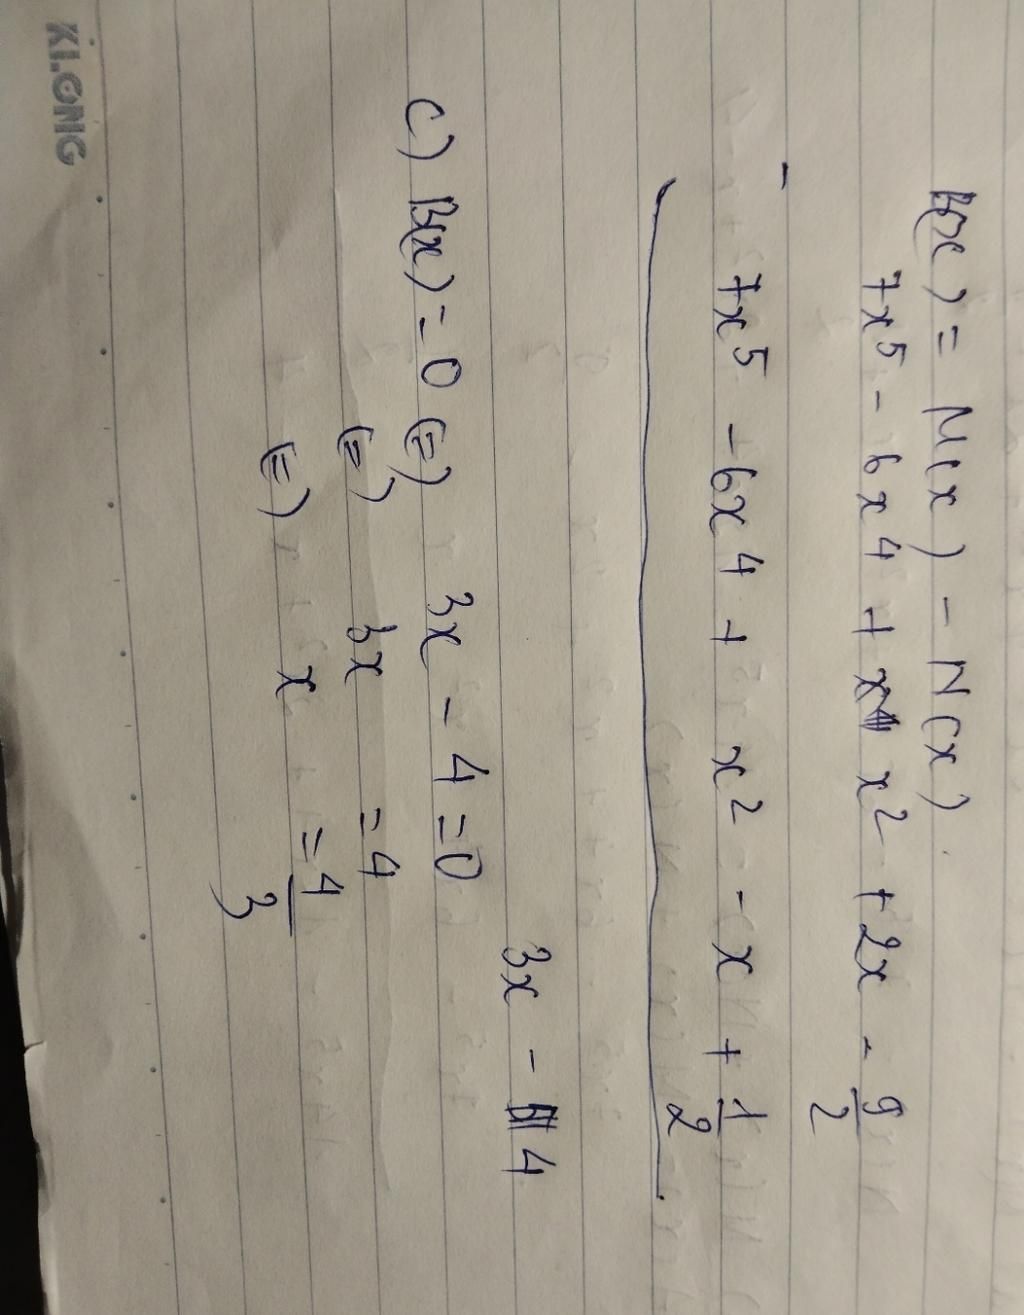 B(x) = M(x) - N(x)
7x⁵ - 6x⁴ + x² + 2x - 9/2
-
7x⁵ - 6x⁴ + x² - x + 1/2
3x - 4
c) B(x) = 0 (=) 3x - 4 = 0
(=) 3x = 4
(=) x = 4/3
KLONG